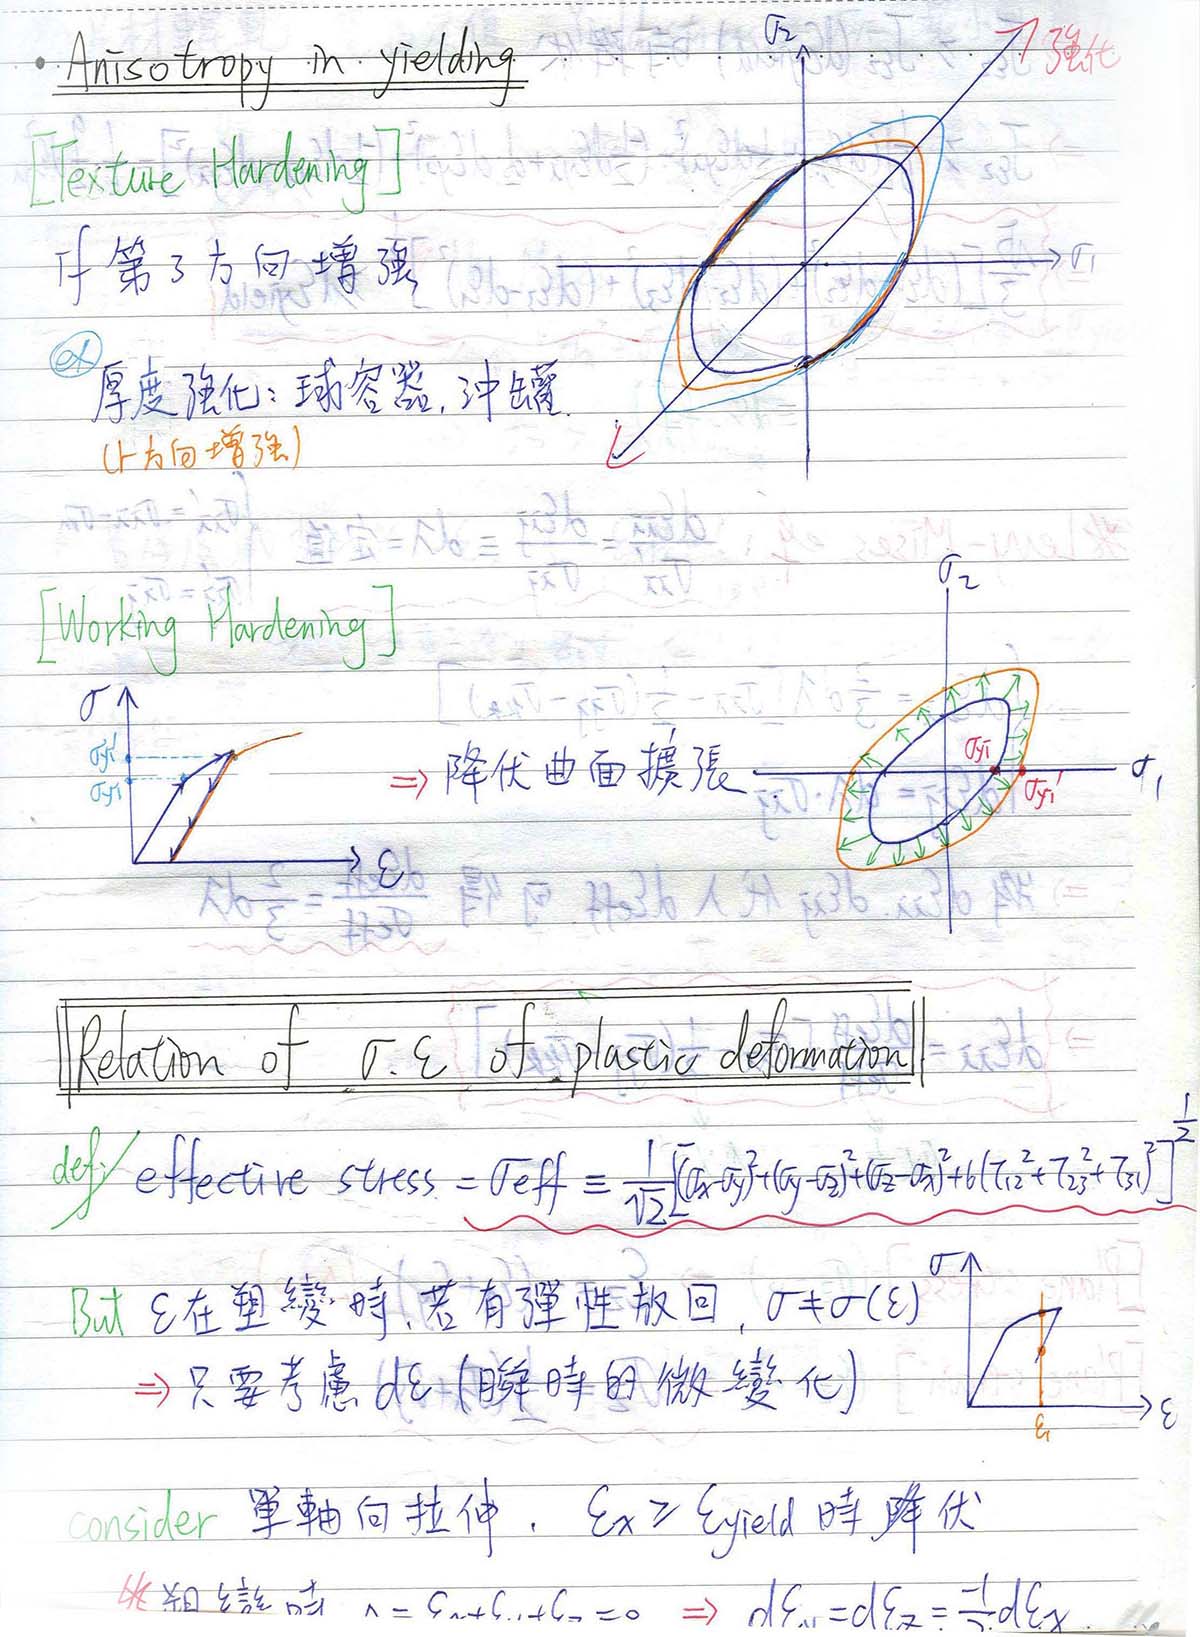 • Anisotropy in yielding
σ2
強化
[Texture Hardening]
If 第3方向增強
σ1
ex 厚度強化:球容器,沖罐
(r方向增強)
[Working Hardening]
σ
σy1'
σy1
ε
⇒ 降伏曲面擴張
σ2
σ1
σy1
σy1'
Relation of σ.ε of plastic deformation
def/ effective stress = σeff ≡ 1/√2 [(σx-σy)²+(σy-σz)²+(σz-σx)²+6(τ12²+τ23²+τ31)²]^1/2
But ε在塑變時,若有彈性放回, σ≠σ(ε)
⇒ 只要考慮dε (瞬時的微變化)
σ
ε
ε1
consider 單軸向拉伸. εx ≥ εyield 時降伏